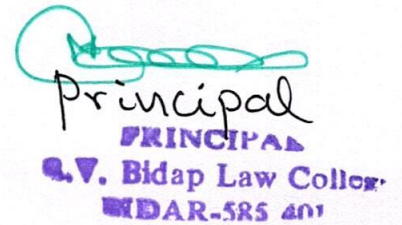 Principal
PRINCIPAL
B.V. Bidap Law College
BIDAR-585 401